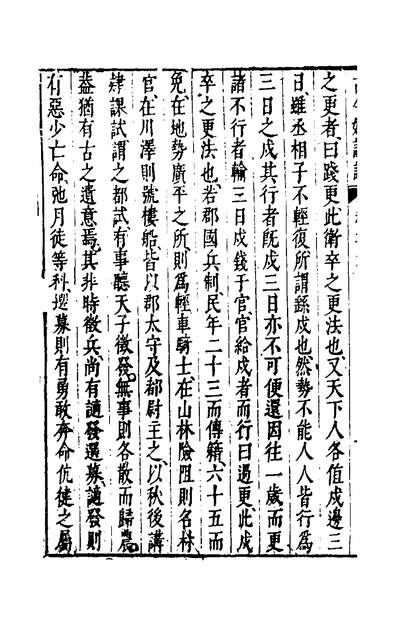 之更者曰踐更此衛卒之更法也又天下人各值戍邊三
日雖丞相子不輕復所謂繇戍也然勢不能人人皆行爲
三日之戍其行者旣戍三日亦不可便還因往一歲而更
諸不行者輸三日戍錢于官官給戍者而行曰過更此戍
卒之更法也若郡國兵制民年二十三而傳籍六十五而
免在地勢廣平之所則爲輕車騎士在山林險阻則名材
官在川澤則號樓船皆以郡太守及都尉主之以秋後講
肄課試謂之都試有事聽天子徵發無事則各散而歸農
蓋猶有古之遺意焉其非時徵兵尚有謫發選募謫發則
有惡少亡命弛刑徒等科選募則有勇敢奔命伉健之屬